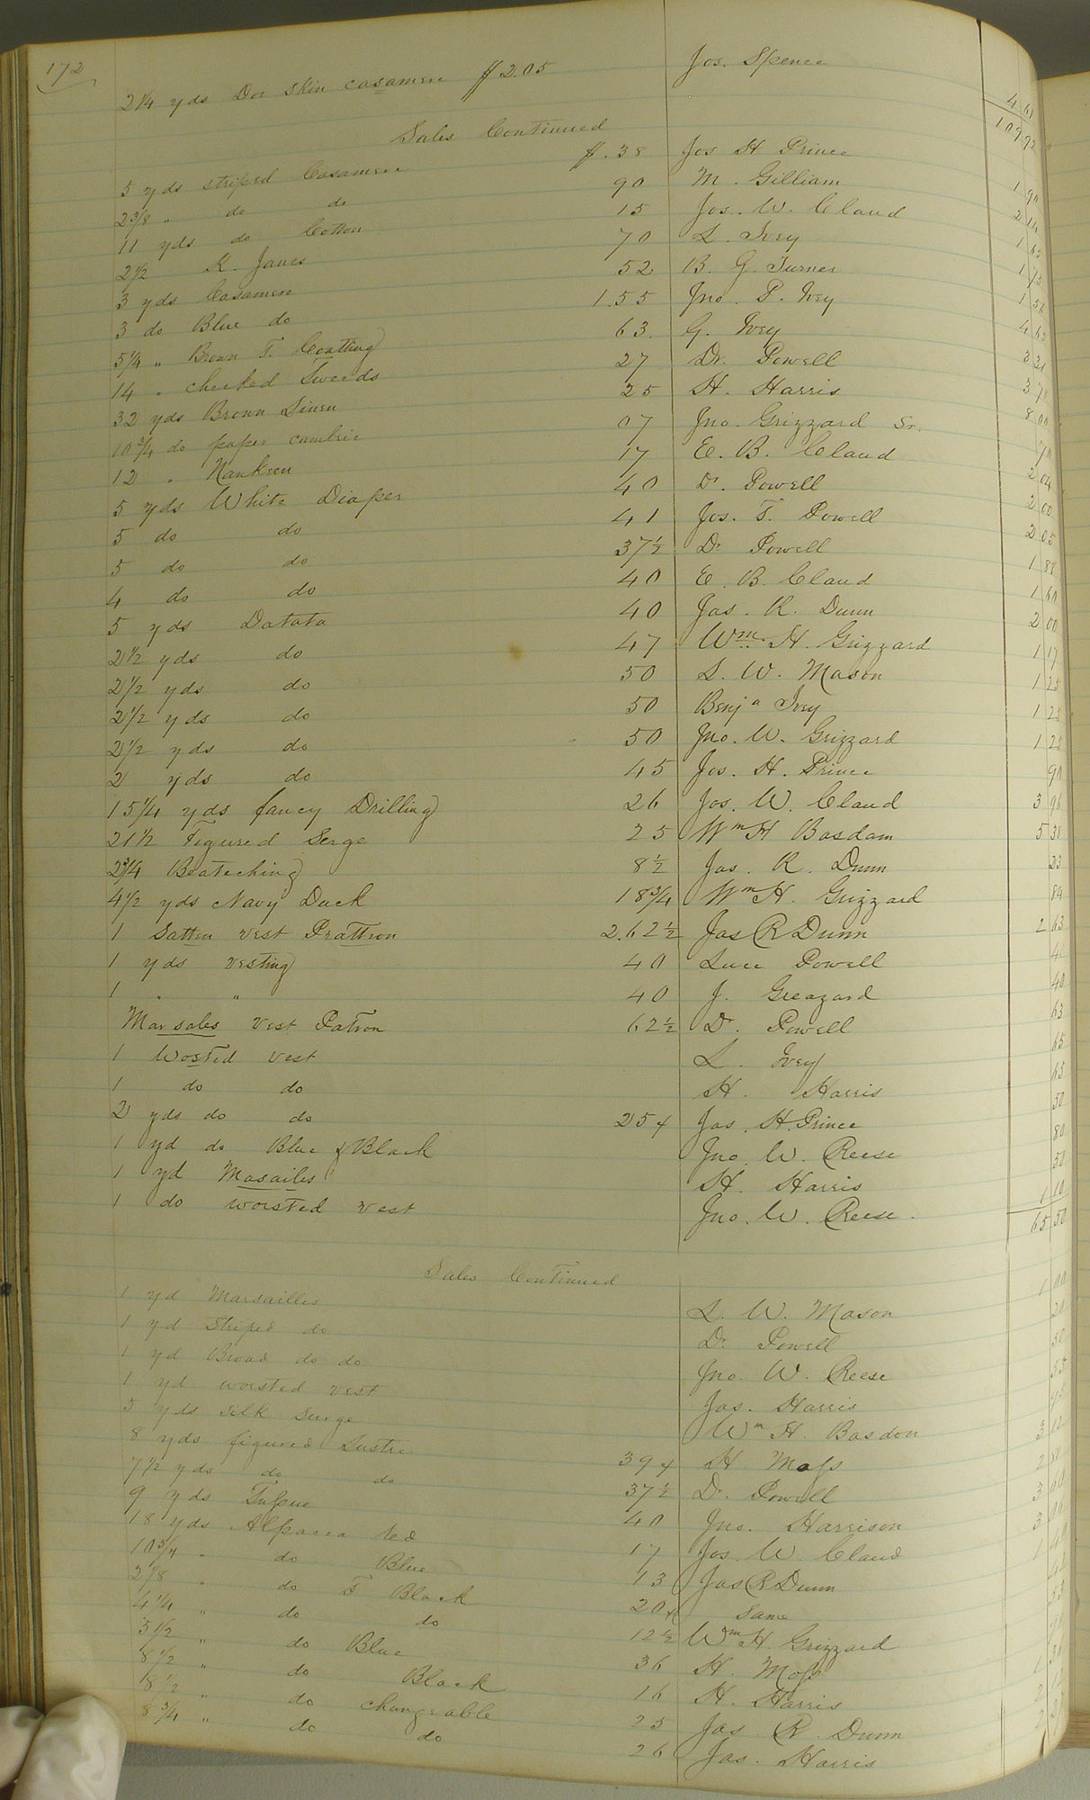 172
2 1/4 yds Doe Skin casamere $2.05 Jos. Spence 4 61
109 92
Sales Continued
5 yds striped Casamere $.38 Jos H Prince 1 90
2 3/8 " do do 90 M. Gilliam 2 14
11 yds do Cotton 15 Jos. W. Claud 1 65
2 1/2 K. Janes 70 L. Ivey 1 75
3 yds Casamere 52 B. G. Turner 1 56
3 do Blue do 1.55 Jno. P. Ivey 4 65
5 1/4 " Brown F. Coatting 63 G. Ivey 3 31
14 " checked Tweeds 27 Dr. Powell 3 78
32 yds Brown Linen 25 H. Harris 8 00
10 3/4 do paper cambric 07 Jno. Grizzard Sr.
12 " Nankeen 17 E. B. Claud 2 04
5 yds White Diaper 40 Dr. Powell 2 00
5 do do 41 Jos. T. Powell 2 05
5 do do 37 1/2 Dr Powell 1 88
4 do do 40 E. B. Claud 1 60
5 yds Datata 40 Jas. R. Dunn 2 00
2 1/2 yds do 47 Wm. H. Grizzard 1 17
2 1/2 yds do 50 L. W. Mason 1 25
2 1/2 yds do 50 Benja Ivey 1 25
2 1/2 yds do 50 Jno. W. Grizzard 1 25
2 yds do 45 Jos. H. Prince 90
15 1/4 yds fancy Drilling 26 Jos. W. Claud 3 96
21 1/2 Figured Serge 25 Wm H Basdam 5 38
2 3/4 Beateching 8 1/2 Jas. R. Dunn 23
4 1/2 yds Navy Duck 18 3/4 Wm H. Grizzard 84
1 Satten vest Prattron 2.62 1/2 Jas R Dunn 2 63
1 yds vesting 40 Luce Powell 40
1 " " 40 J. Greazard 40
Marsales vest Patron 62 1/2 Dr. Powell 63
1 Wosted vest L. Ivey 65
1 do do H. Harris 65
2 yds do do 25 Jas. H. Prince 50
1 yd do Blue & Black Jno. W. Reese 80
1 yd Masailes H. Harris 50
1 do worsted vest Jno. W. Reese 1 10
65 50
Sales Continued
1 yd Marsailles L. W. Mason 1 00
1 yd Striped do Dr. Powell
1 yd Broad do do Jno. W. Reese 50
1 yd worsted vest Jas. Harris 55
yds silk Serge Wm H. Basdon
8 yds figured Lustre 39 H. Mass 3 12
7 1/2 yds do do 37 1/2 Dr. Powell
9 yds 40 Jno. Harrison 3
18 yds Alpacca red 17 Jos. W. Claud 3
10 3/4 " do Blue 13 Jas R Dunn 1
2 7/8 " do F Black 20 Same
4 1/4 " do do 12 1/2 Wm H. Grizzard
" do Blue 36 H. Moss 1
8 1/2 " do Black 16 H. Harris
8 1/2 " do changeable 25 Jas R. Dunn 2
8 3/4 " do do 26 Jas. Harris 2